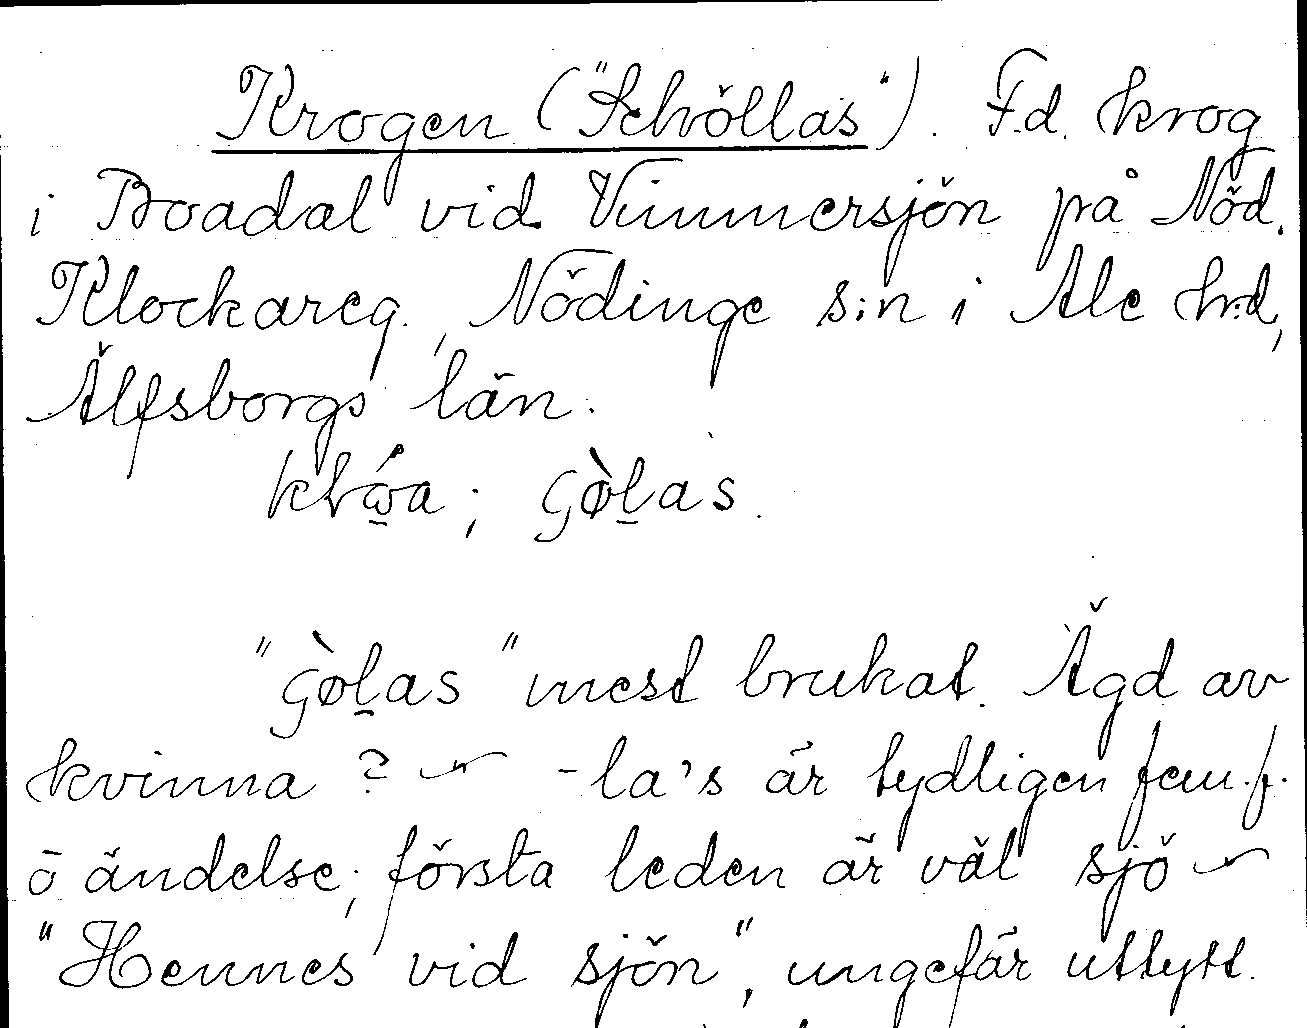 Krogen ("Schöllas"). F.d. krog
i Boadal vid Vimmersjön på Nöd.
Klockareg., Nödinge s:n i Ale h:d,
Älfsborgs län.
"gø̀ḻas" mest brukat. Ägd av
kvinna ? ~ -la's är tydligen fem. f.
ö ändelse; första leden är väl sjö ~
"Hennes vid sjön", ungefär uttytt.